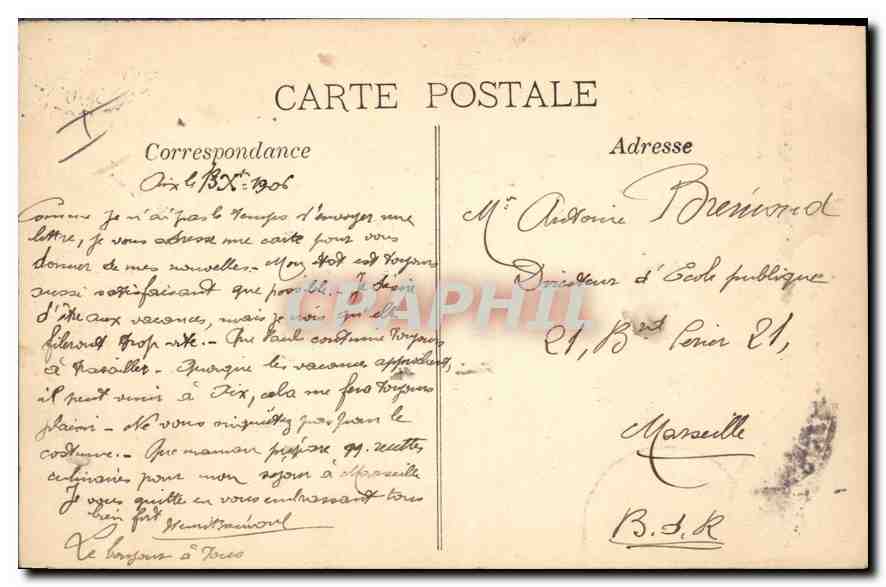 CARTE POSTALE
Correspondance
Aix le 13 Xbre 1906
Comme je n'ai pas le temps d'envoyer une
lettre, je vous adresse une carte pour vous
donner de mes nouvelles - Mon état est toujours
aussi satisfaisant que possible. - Je désire
d'être aux vacances, mais je vois qu'elles
fileront trop vite. - Que Paul continue toujours
à travailler - Quoique les vacances approchent,
il peut venir à Aix, cela me fera toujours
plaisir - Ne vous inquiétez pas pour le
costume. - Que maman prépare qq. recettes
culinaires pour mon séjour à Marseille
Je vous quitte en vous embrassant tous
bien fort
Henri Brémond
Le bonjour à tous
Adresse
Mr Antoine Brémond
Directeur d'École publique
21, Bd Perier 21,
Marseille
B. d. R
CPAPHIL